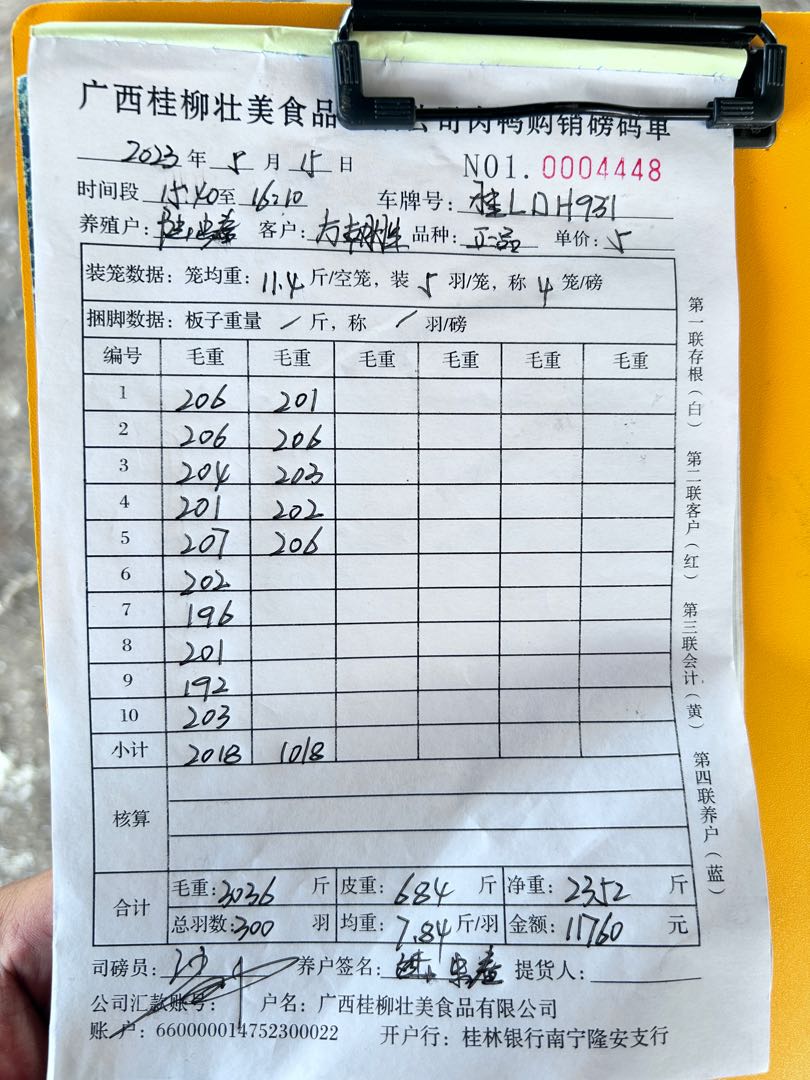 广西桂柳壮美食品 公司肉鸭购销磅码单
2023年5月15日 NO1.0004448
时间段 15:40至16:10 车牌号:桂LDH931
养殖户: 客户: 品种:正品 单价:5
装笼数据:笼均重:11.4斤/空笼,装5羽/笼,称4笼/磅
捆脚数据:板子重量 / 斤,称 / 羽/磅
编号 毛重 毛重 毛重 毛重 毛重 毛重
1 206 201
2 206 206
3 204 203
4 201 202
5 207 206
6 202
7 196
8 201
9 192
10 203
小计 2018 1018
核算
合计 毛重:3036斤 皮重:684斤 净重:2352斤
总羽数:300羽 均重:7.84斤/羽 金额:11760元
司磅员: 养户签名: 提货人:
公司汇款账号: 户名:广西桂柳壮美食品有限公司
账户:660000014752300022 开户行:桂林银行南宁隆安支行
第一联存根(白) 第二联客户(红) 第三联会计(黄) 第四联养户(蓝)